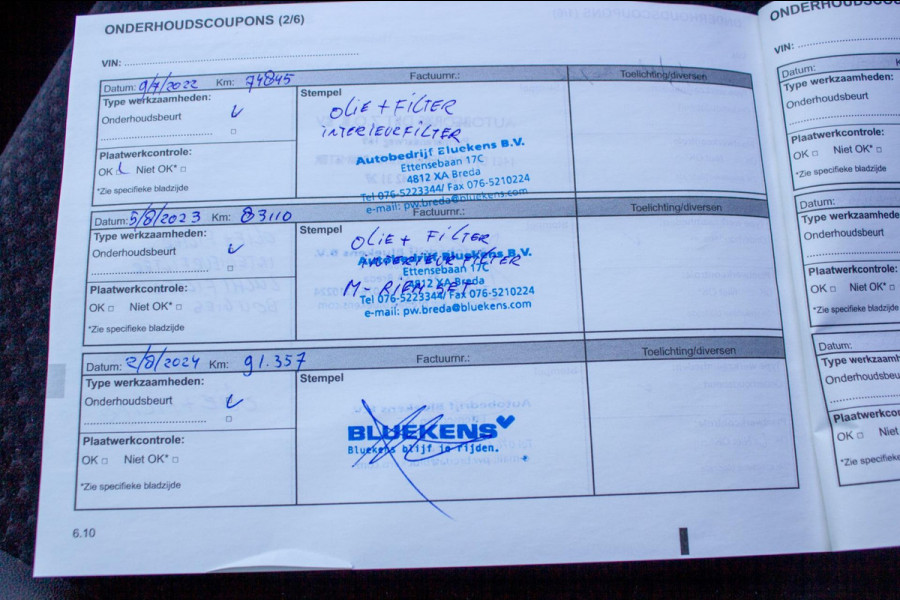 ONDERHOUDSCOUPONS (2/6)
VIN:
Datum: 9/7/2022 Km: 74845 Factuurnr.: Toelichting/diversen
Type werkzaamheden:
Onderhoudsbeurt
Plaatwerkcontrole:
OK Niet OK*
*Zie specifieke bladzijde
Stempel
OLIE + FILTER
INTERIEURFILTER
Autobedrijf Bluekens B.V.
Ettensebaan 17C
4812 XA Breda
Tel 076-5223344/ Fax 076-5210224
e-mail: pw.breda@bluekens.com
Datum: 5/8/2023 Km: 83110 Factuurnr.: Toelichting/diversen
Type werkzaamheden:
Onderhoudsbeurt
Plaatwerkcontrole:
OK Niet OK*
*Zie specifieke bladzijde
Stempel
OLIE + FILTER
INTERIEUR FILTER
M-RIEM SET
Autobedrijf Bluekens B.V.
Ettensebaan 17C
4812 XA Breda
Tel 076-5223344/ Fax 076-5210224
e-mail: pw.breda@bluekens.com
Datum: 2/8/2024 Km: 91.357 Factuurnr.: Toelichting/diversen
Type werkzaamheden:
Onderhoudsbeurt
Plaatwerkcontrole:
OK Niet OK*
*Zie specifieke bladzijde
Stempel
BLUEKENS
Bluekens blijf je rijden.
6.10
ONDERHOUDSCOU
VIN:
Datum:
Type werkzaamheden:
Onderhoudsbeurt
Plaatwerkcontrole:
OK Niet OK*
*Zie specifieke bladzijde
Datum:
Type werkzaamhede
Onderhoudsbeurt
Plaatwerkcontrole:
OK Niet OK*
*Zie specifieke bladz
Datum:
Type werkzaamh
Onderhoudsbeu
Plaatwerkco
OK Niet
*Zie specifie